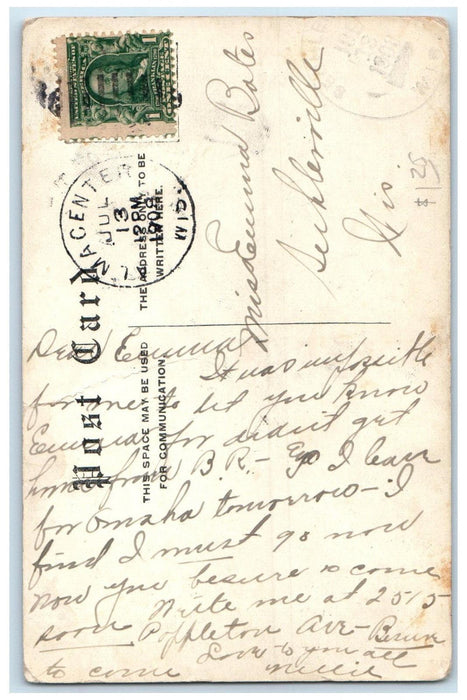 ALMA CENTER
JUL
13
12 PM
1908
WIS.
Post Card
THIS SPACE MAY BE USED
FOR COMMUNICATION
THE ADDRESS ONLY TO BE
WRITTEN HERE.
Miss Emma Bates
Sechlerville
Wis
Dear Emma
It was impossible
for me to let you know
for didn't get
home from B.R. - I leave
for Omaha tomorrow - I
find I must go now
Now you be sure & come
soon Write me at 2515
Poppleton Ave - Be sure
to come Love to you all